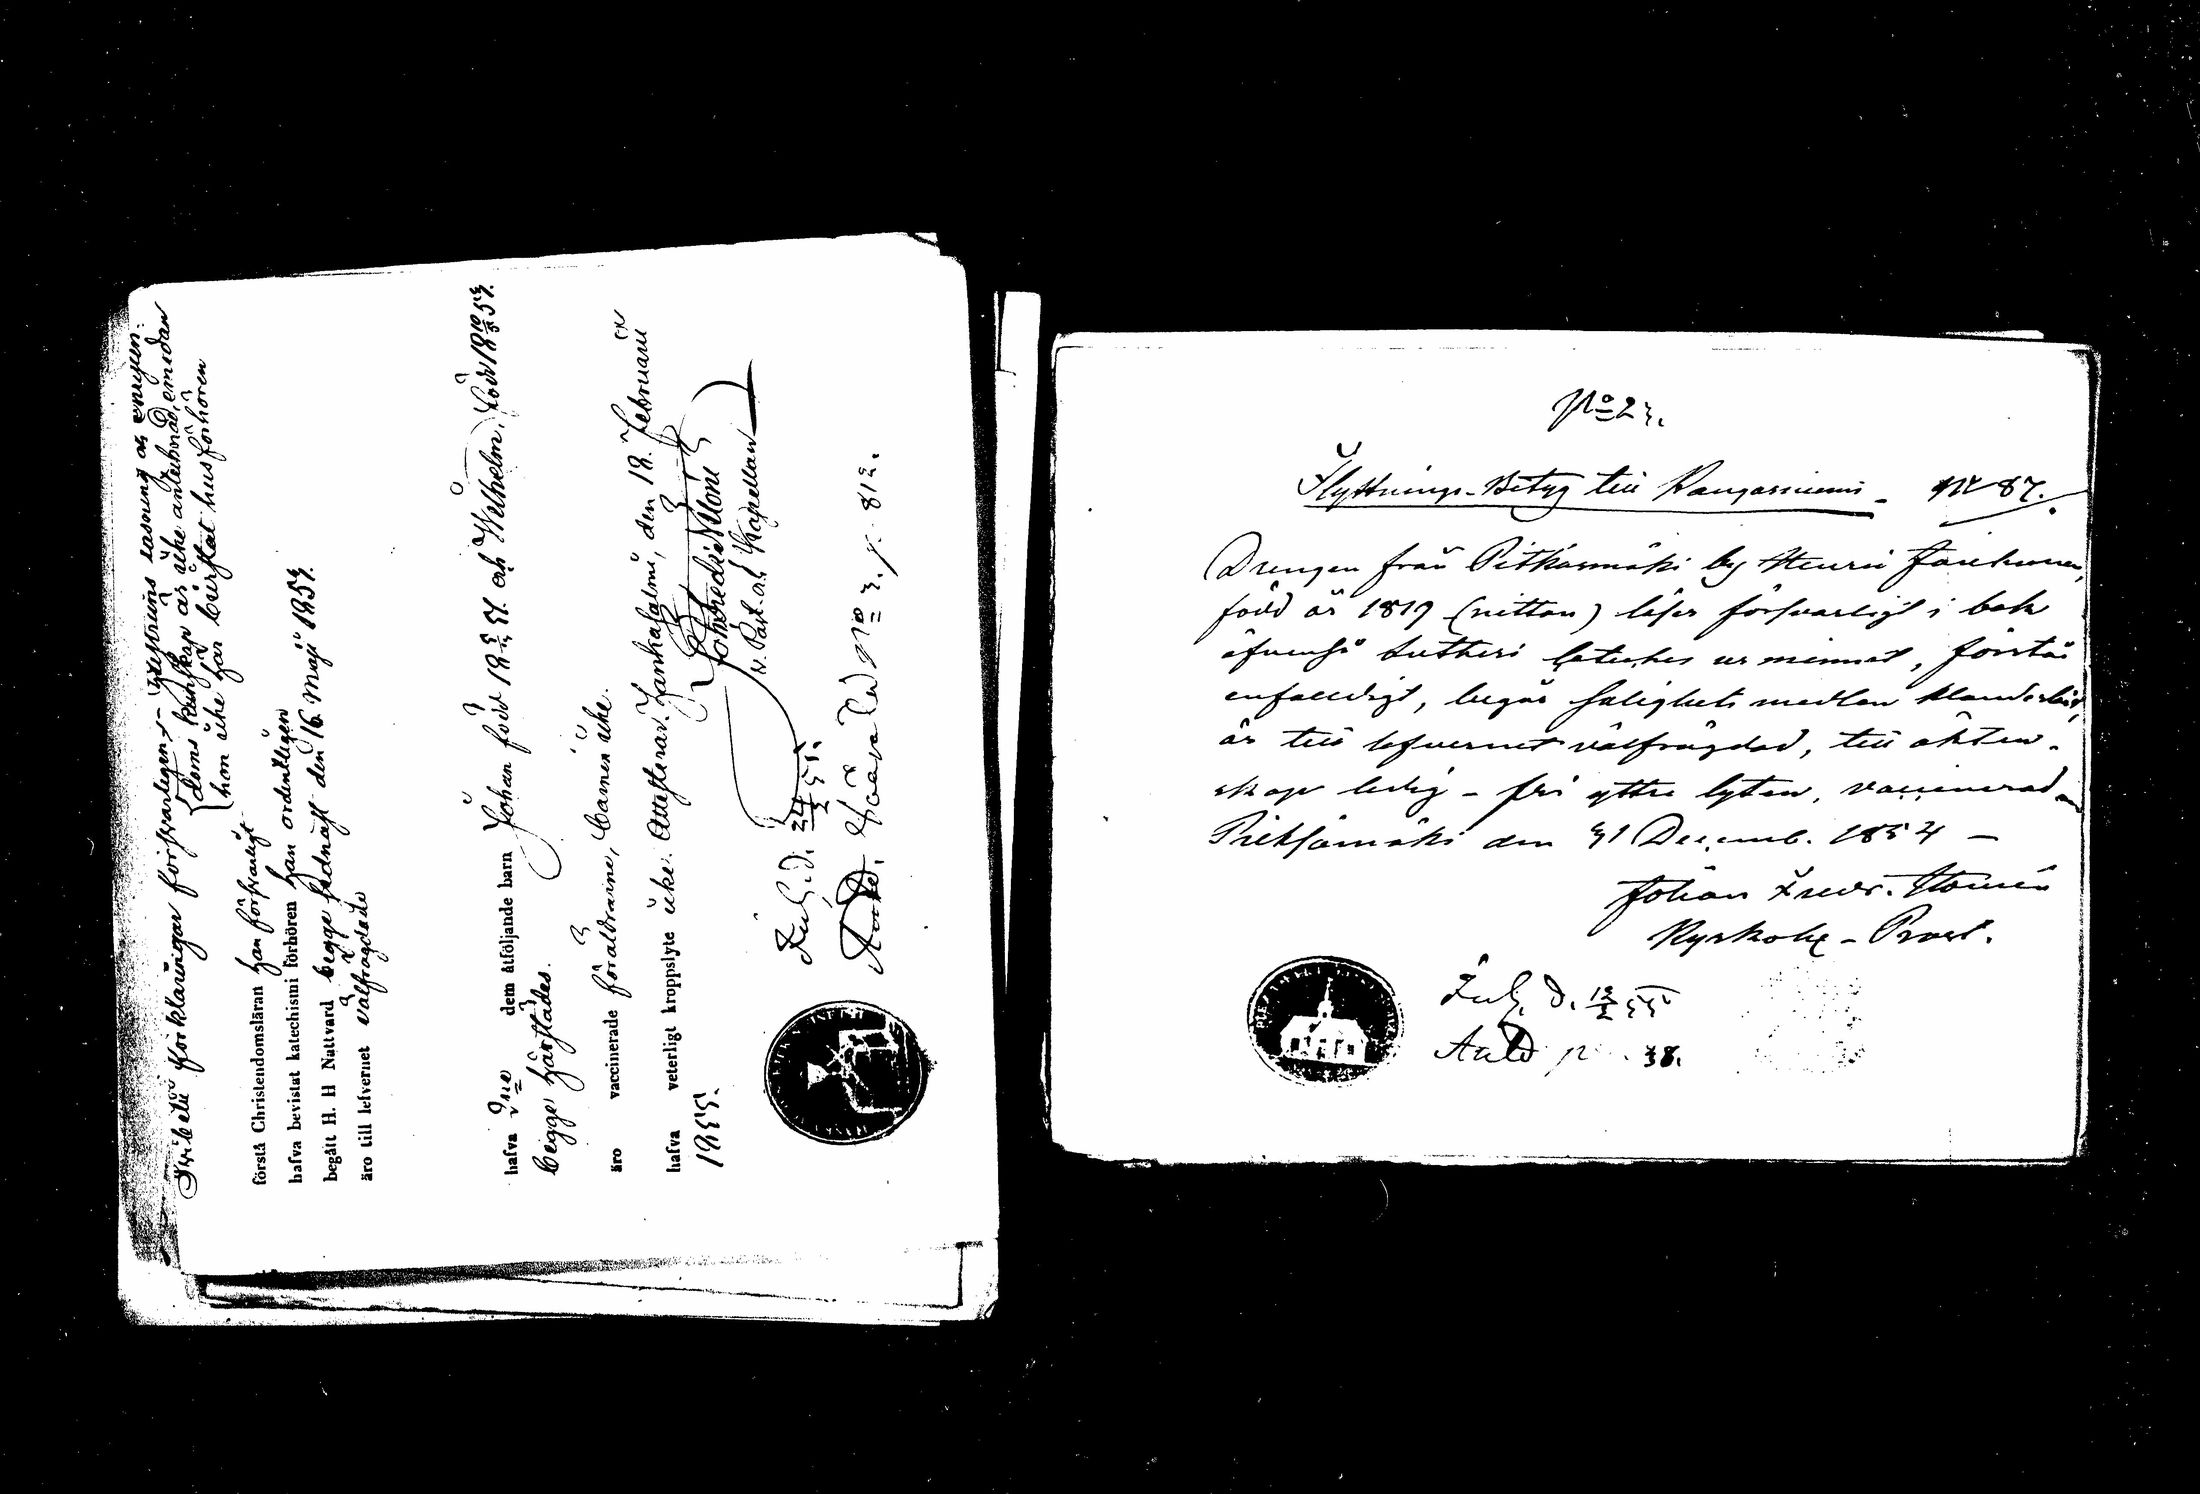 förklaringar försvarligen
deras kunskap är icke antecknad, emedan
hon icke har bevistat husförhören
förstå Christendomsläran han försvarligt
hafva bevistat katechismi förhören han ordentligen
begått H. H Nattvard begge sednast den 16 Maji 1854.
äro till lefvernet välfrägdade
hafva dem åtföljande barn Johan född 18 54. och Wilhelm, född 18 54.
begge härstädes.
äro vaccinerade föräldrarne, barnen icke.
hafva veterligt kroppslyte icke. Attesterar. Hankasalmi, den 18. Februarii
1855.
v. Past. och Kapellan
Inl. d. 24/3 55.
p. 812.
No 23.
Flyttnings-Betyg till Kangasniemi - No 87.
Drengen från Pitkasmäki by Henric
född år 1819 (nitton) läser försvarligt i bok
äfvenså Lutheri Cateches ur minnet, förstår
enfaldigt, begår salighets medlen klanderlöst,
är till lefvernet välfrägdad, till äkten-
skap ledig - fri yttre lyten, vaccinerad
Pieksämäki den 31 Decemb. 1854 -
Johan Fredr.
Kyrkoh - Prost.
Inl. d. 12/2 55
38.